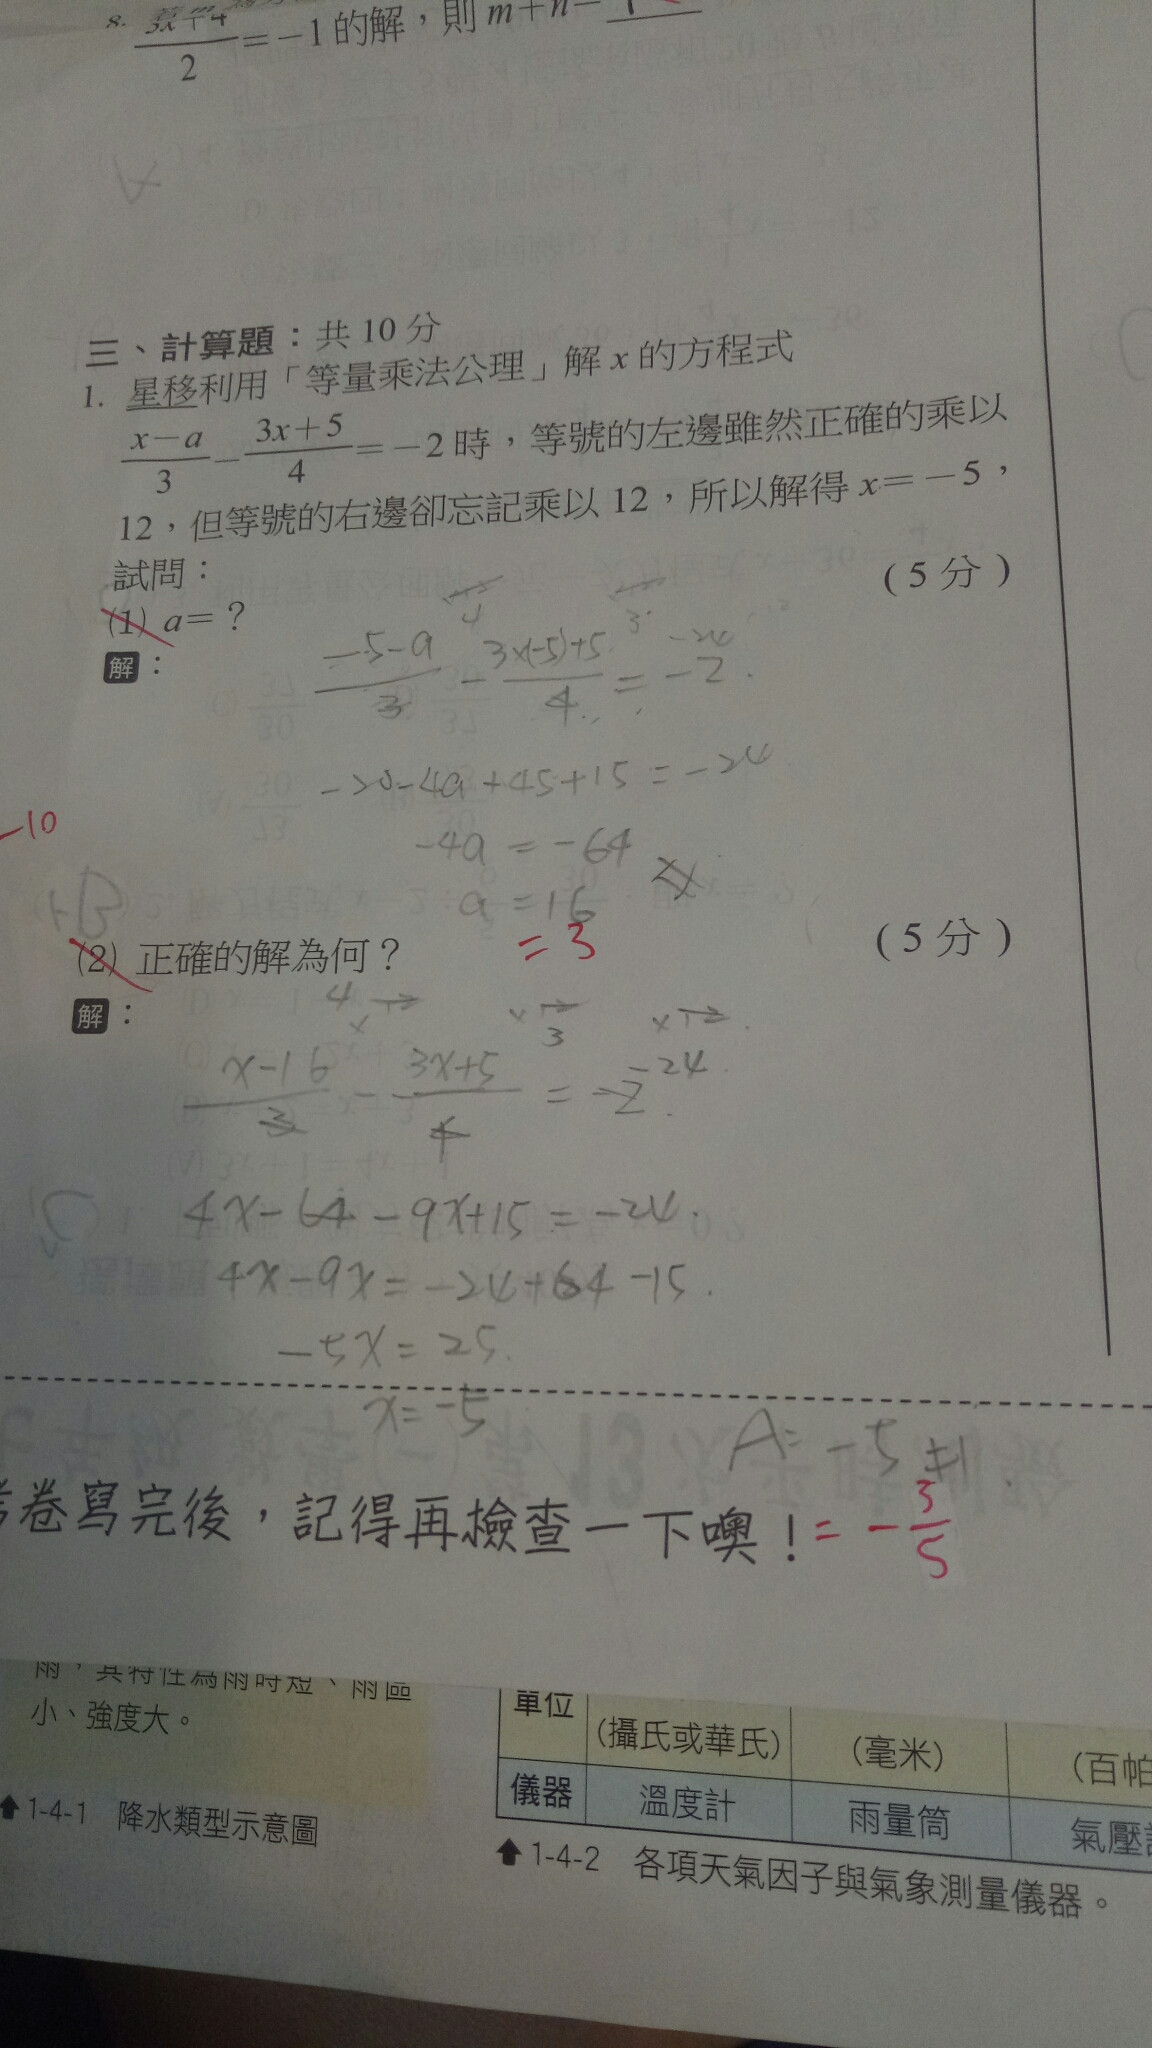 8.
3x+4/2=−1的解,則m+n=
三、計算題:共10分
1. 星移利用「等量乘法公理」解x的方程式
x−a/3−3x+5/4=−2時,等號的左邊雖然正確的乘以
12,但等號的右邊卻忘記乘以12,所以解得x=−5,
試問:
(1) a=? (5分)
解:
−5−a/3 − 3×(−5)+5/4 = −2. −24
4 3
−20−4a+45+15=−24
−4a=−64
−10
a=16
=3
(2) 正確的解為何? (5分)
解:
4 ×12 ×12 3 ×12
x−16/3 − 3x+5/4 = −2. −24
4x−64−9x+15=−24.
4x−9x=−24+64−15.
−5x=25.
x=−5
A=−5
卷寫完後,記得再檢查一下噢!=−3/5
雨,其特性為雨時短、雨區
小、強度大。
單位 (攝氏或華氏) (毫米) (百帕
儀器 溫度計 雨量筒 氣壓
1-4-1 降水類型示意圖
1-4-2 各項天氣因子與氣象測量儀器。